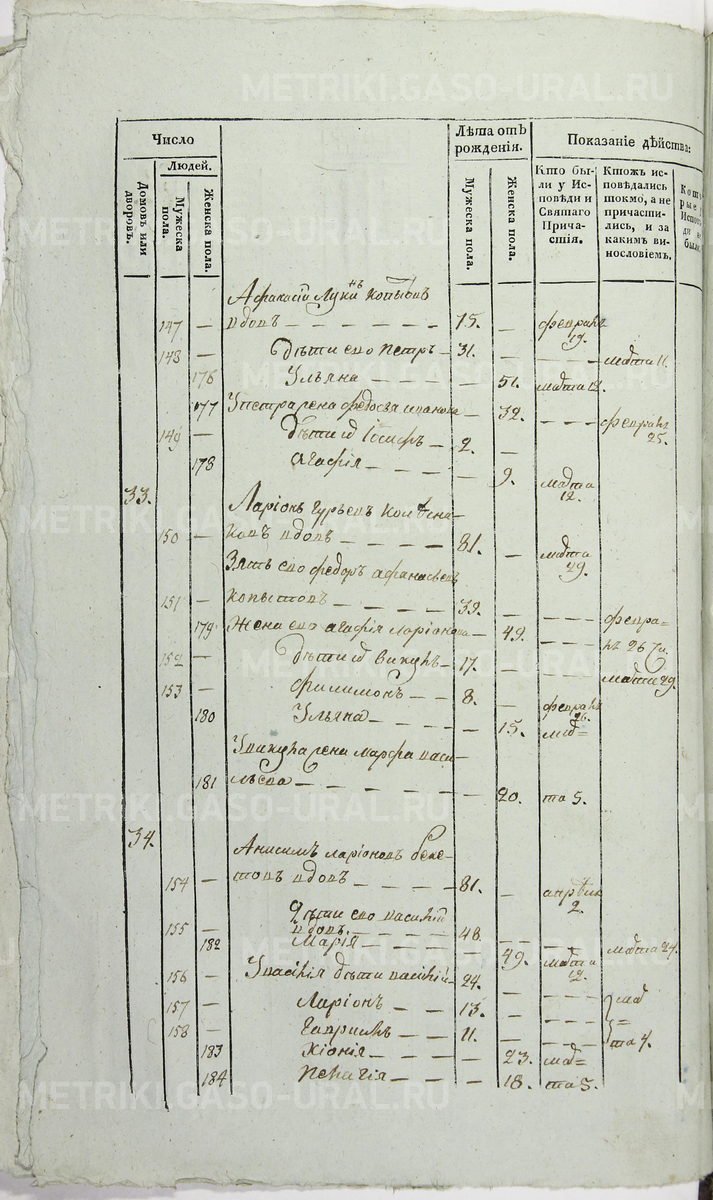 METRIKI.GASO-URAL.RU
Число
Лѣта отъ рожденія.
Показаніе дѣйства:
Людей.
Домовъ или дворовъ.
Мужеска пола.
Женска пола.
Мужеска пола.
Женска пола.
Кто были у Исповѣди и Святаго Причастія.
Ктожъ исповѣдались токмо, а не причастились, и за какимъ винословіемъ.
Афанасій Лукинъ Копытовъ
147 — вдовъ — 75. — февраля 19.
148 — Дѣти его Петръ — 31. — — — марта 11.
176 Ульяна — — 51. марта 12.
177 У Петра жена Федосья Иванова — 32. — — — февраля 25.
149 — Дѣти их Іосифъ — 2. — — —
178 Агафія — — 9. марта 12.
33. Ларіонъ Гурьевъ Колѣсни-
150 — ковъ вдовъ — 81. — марта 29.
Зять его Федоръ Афанасьевъ
151 — Копытовъ — 39. — — — февра-
179 Жена его Агафія Ларіонова — 49. — — — ля 26
152 — Дѣти их Викулъ — 17. — — — марта 29.
153 — Филимонъ — 8. — февраля 26.
180 Ульяна — — 15. мар=
У Викула жена Марфа Васи-
181 льева — — 20. та 5.
34. Анисимъ Ларіоновъ Беке-
154 — товъ вдовъ — 81. — апрѣля 2.
Дѣти его Василій
155 — вдовъ — 48. — — — марта 24.
182 Марія — — 49. марта 12.
156 — У Василія дѣти Василій — 24. — — —
157 — Ларіонъ — 13. — — — мар
158 — Гаврилъ — 11. — — — та 4.
183 Хіонія — — 23. мар=
184 Пелагія — — 18. та 5.